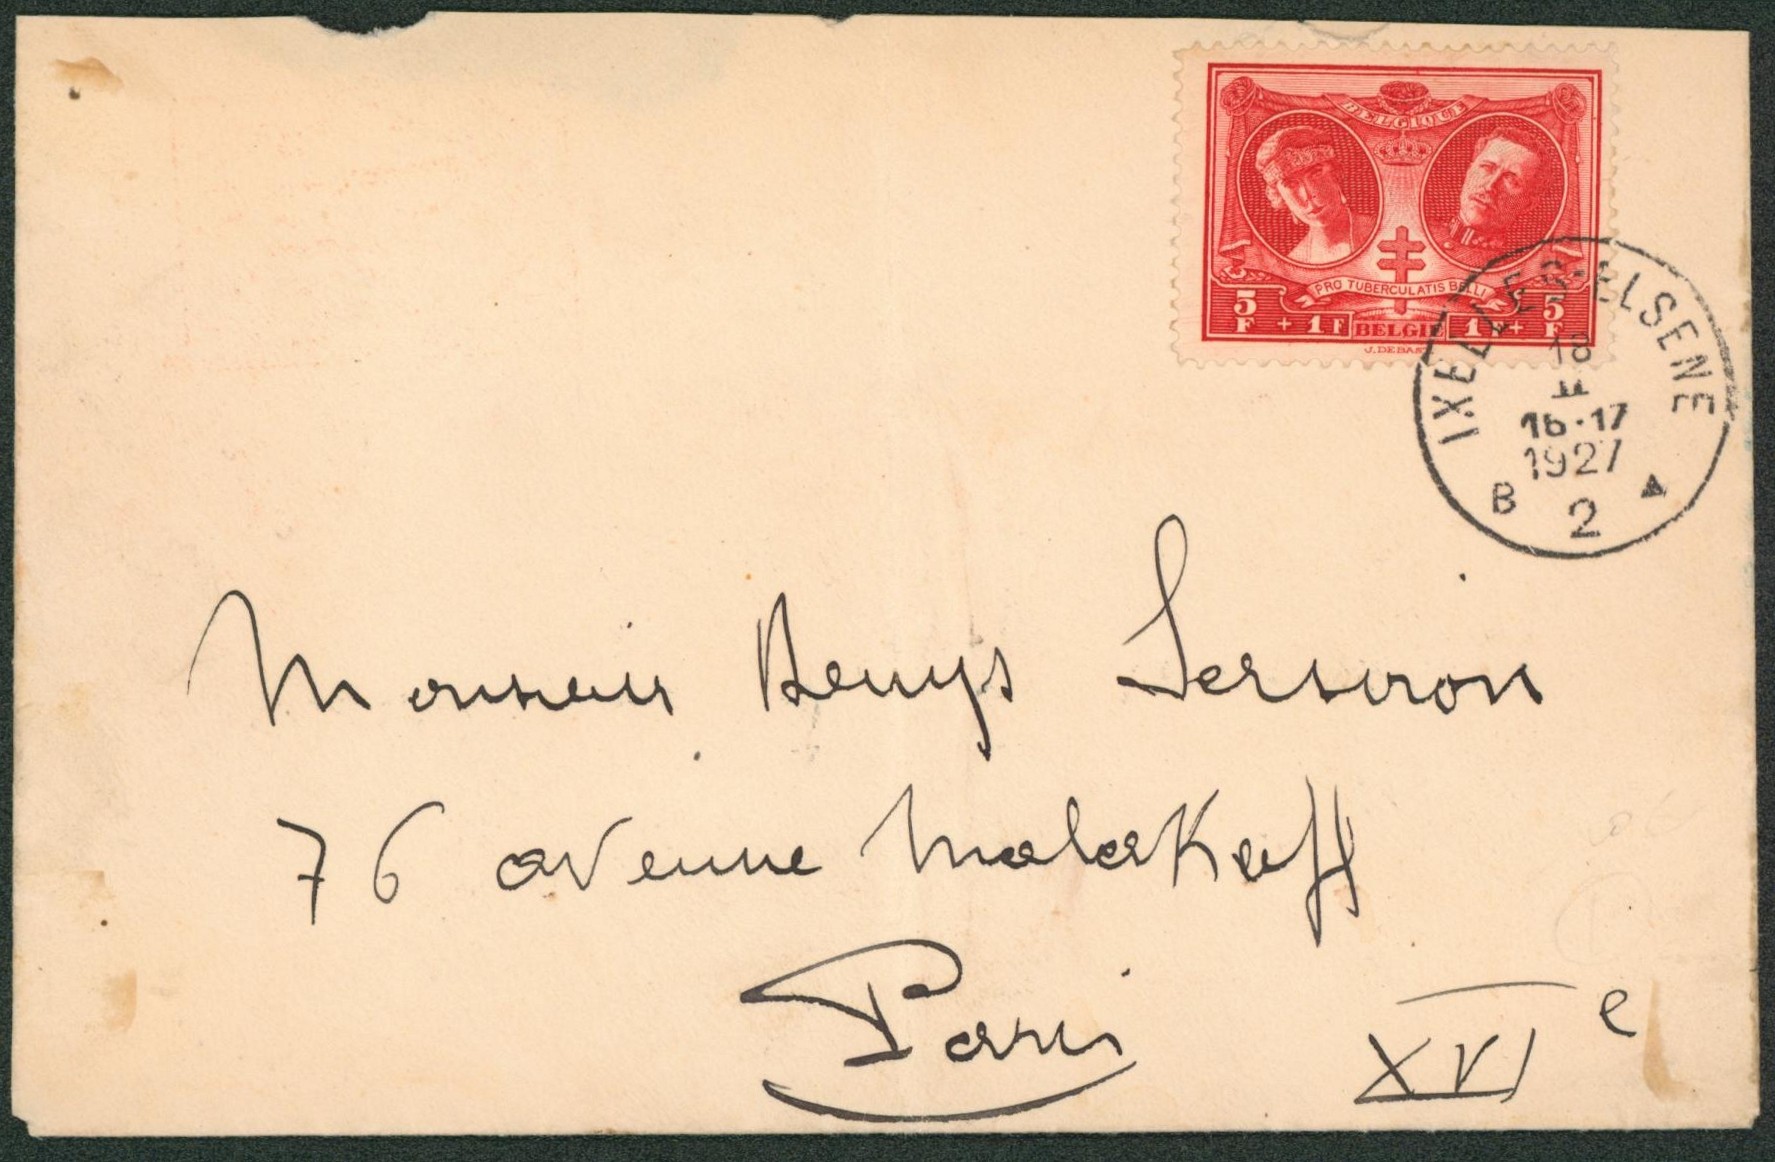 BELGIQUE
PRO TUBERCULATIS BELLI
5 F + 1 F BELGIË 1 F + 5 F
J. DEBAST
IXELLES-ELSENE
18
II
16-17
1927
B 2
Monsieur Denys
76 avenue Malakoff
Paris XVI e